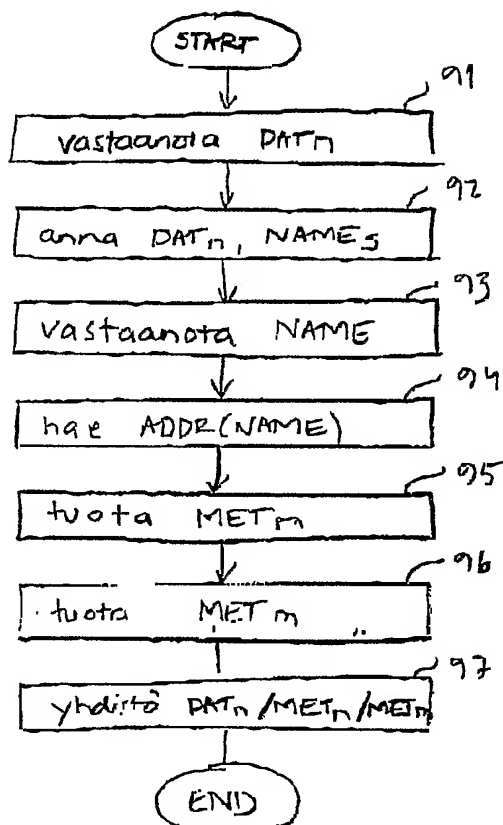 START
91
vastaanota DATn
92
anna DATn, NAMEs
93
vastaanota NAME
94
hae ADDR(NAME)
95
tuota METm
96
tuota METm
97
yhdistä DATn/METn/METm
END